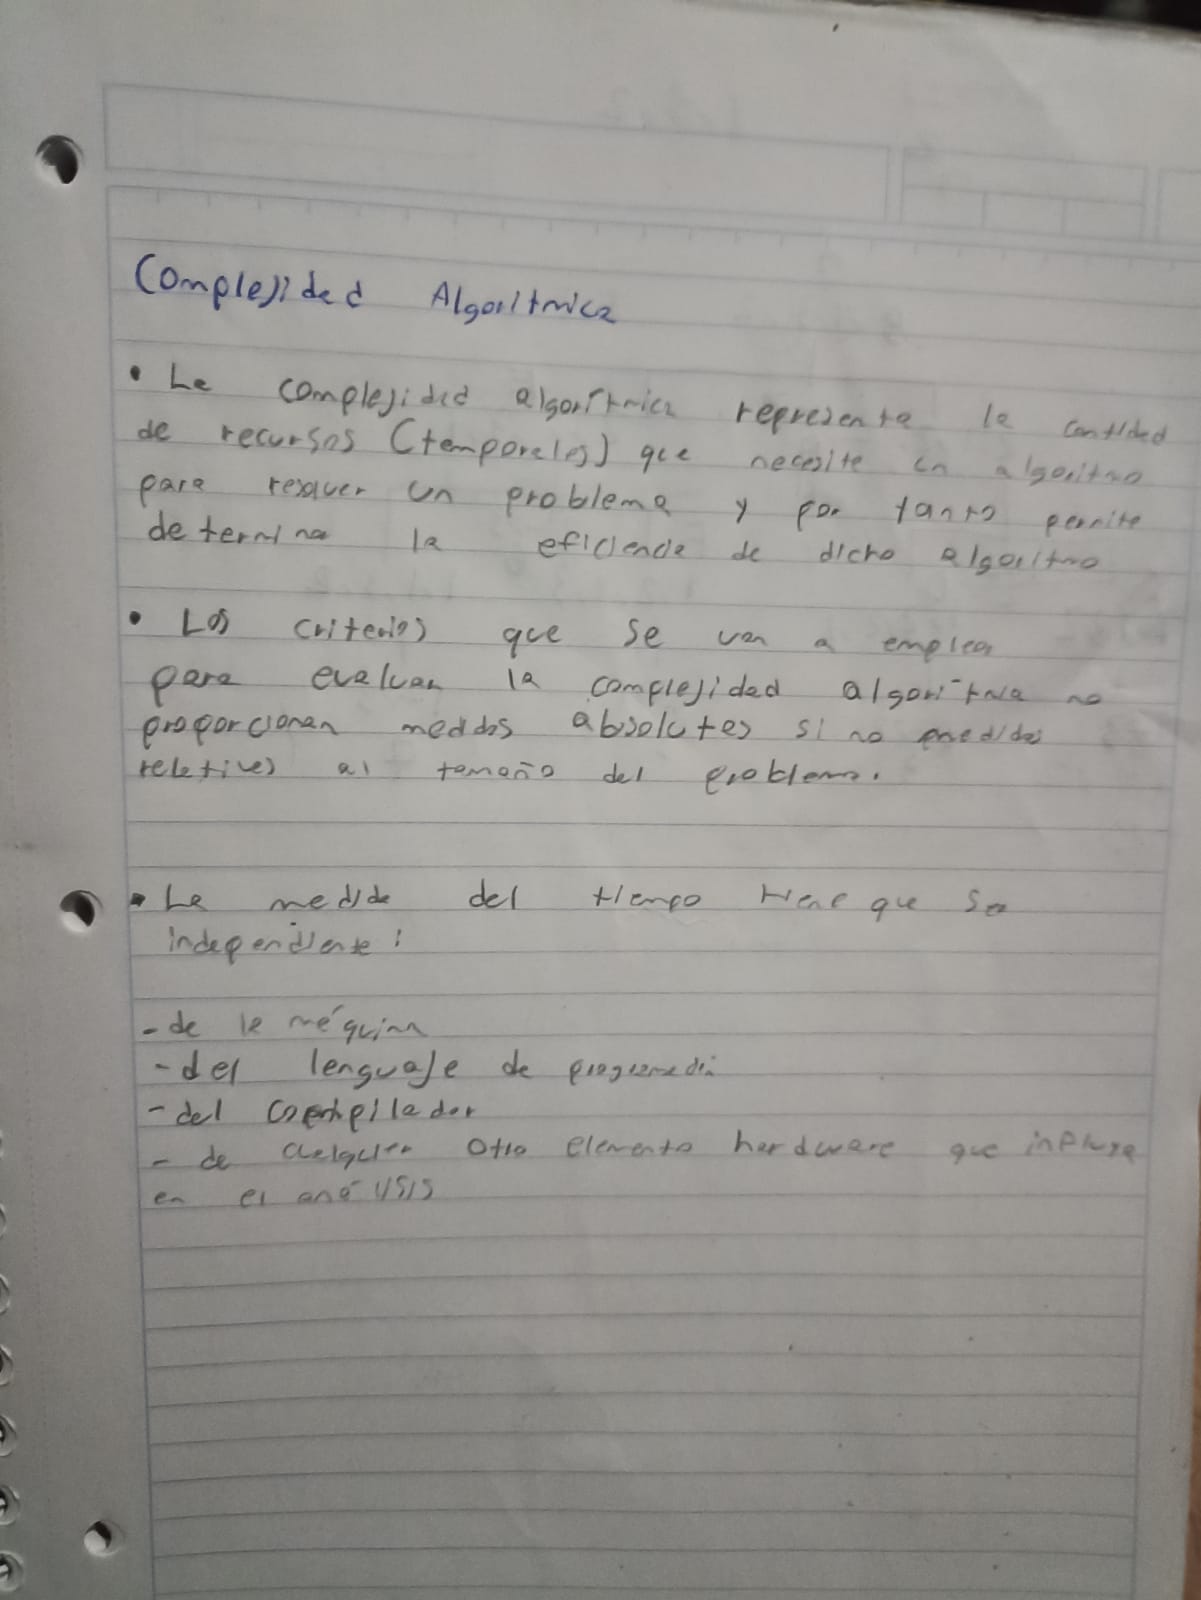 Complejidad Algorítmica
• La complejidad algorítmica representa la cantidad
de recursos (temporales) que necesita un algoritmo
para resolver un problema y por tanto permite
determinar la eficiencia de dicho algoritmo
• Los criterios que se van a emplear
para evaluar la complejidad algorítmica no
proporcionan medidas absolutas si no medidas
relativas al tamaño del problema.
• La medida del tiempo tiene que ser
independiente:
- de la máquina
- del lenguaje de programación
- del compilador
- de cualquier otro elemento hardware que influya
en el análisis